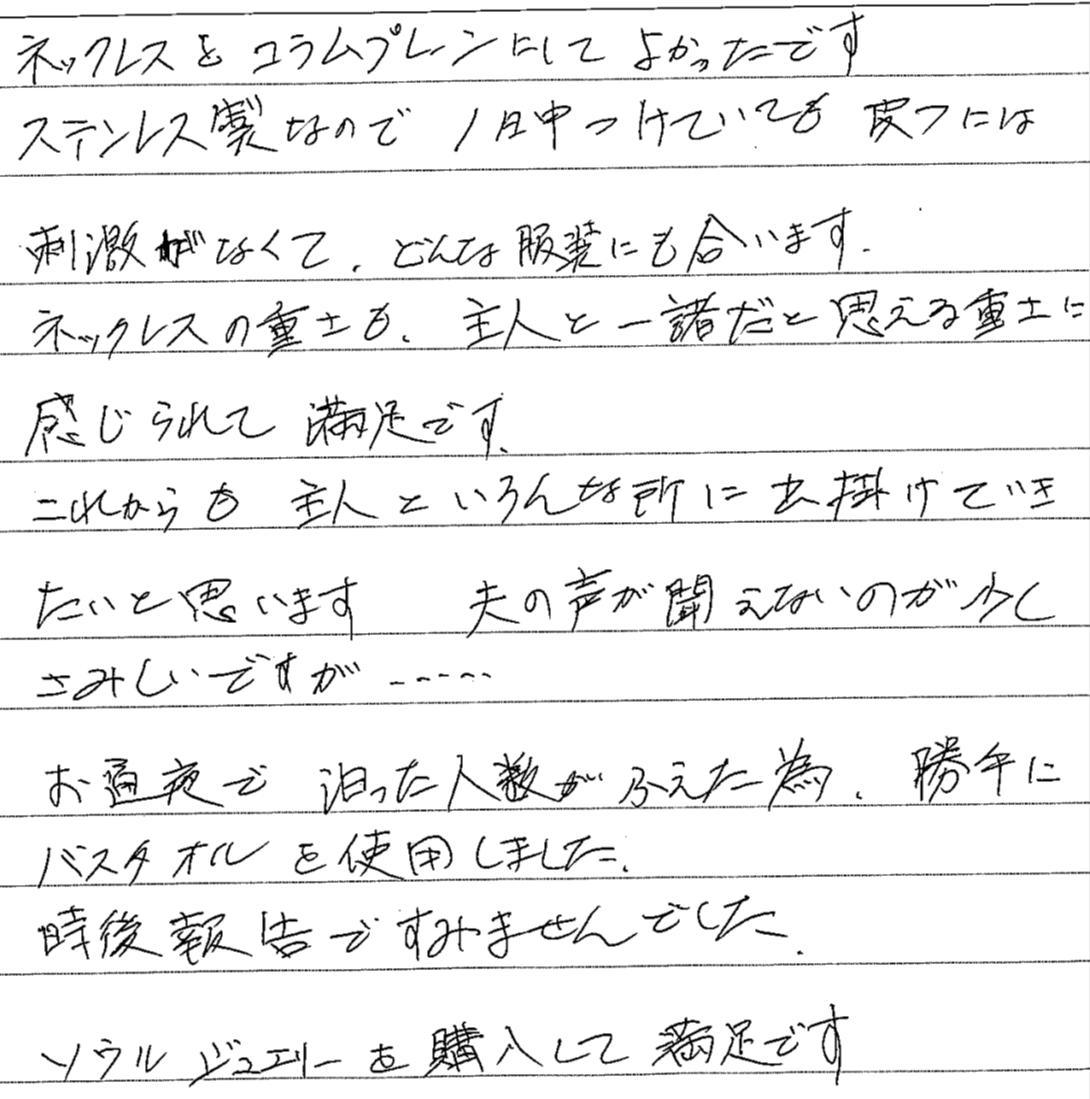 ネックレスをコラムプレーンにしてよかったです
ステンレス製なので 1日中つけていても 皮フには
刺激がなくて、どんな服装にも合います.
ネックレスの重さも、主人と一諸だと思える重さに
感じられて 満足です.
これからも 主人といろんな所に出掛けていき
たいと思います 夫の声が聞えないのが少し
さみしいですが……
お通夜で 泊った人数がふえた為、勝手に
バスタオルを使用しました.
時後報告ですみませんでした.
ソウルジュエリーを購入して 満足です